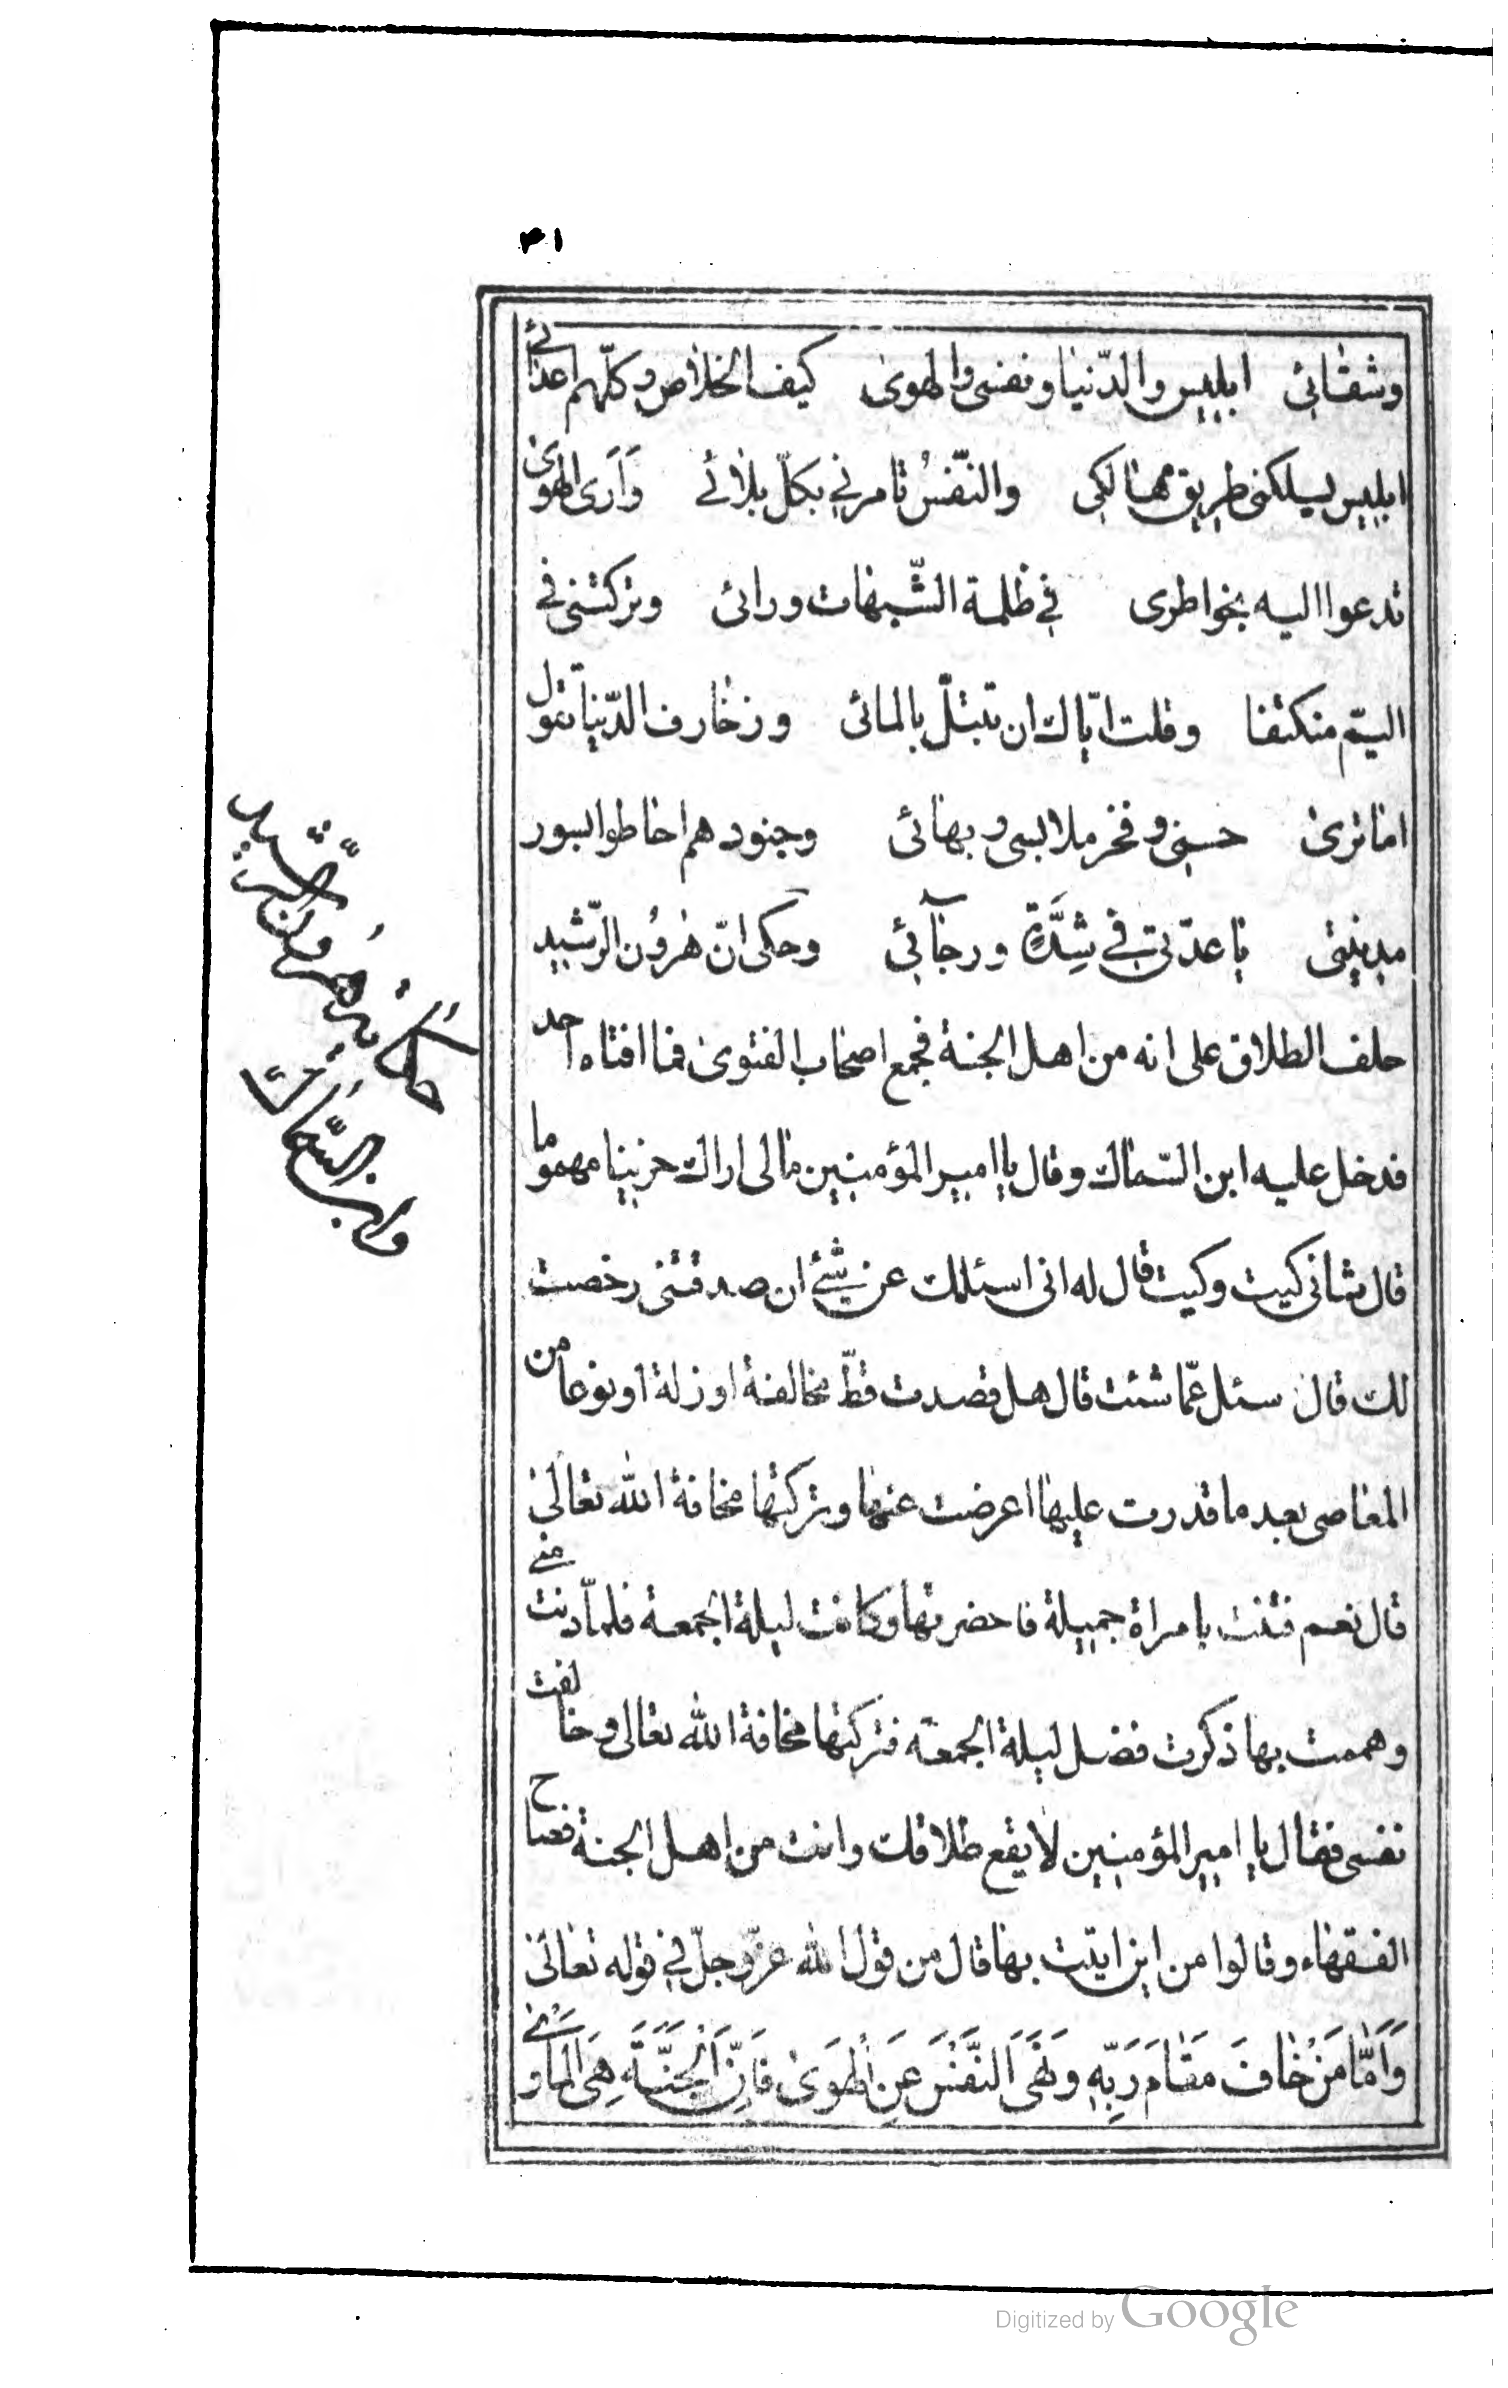 ٣١
وشقائى ابليس والدّنيا ونفسى والهوى كيف الخلاص وكلّهم اعدائى
ابليس يسلكنى طريق مهالكى والنّفسُ تامرنى بكلّ بلائى وَاَرَى الهوى
تدعوا اليه بخواطرى فى ظلمة الشّبهات ورائى وتركتنى فى
اليمّ منكتفا وقلت ايّاك ان تبتلّ بالمائى وزخارف الدّنيا تقول
اما ترى حسنى وفخر ملابسى وبهائى وجنودهم احاطوا بسور
مدينتى يا عدّتى فى شِدَّةٍ ورجآئى وحكى انّ هٰرُون الرّشيد
حلف الطلاق على انه من اهل الجنة فجمع اصحاب الفتوى فما افتاه احد
فدخل عليه ابن السّماك وقال يا امير المؤمنين مالى اراك حزينا مهموما
قال شانى كيت وكيت قال له انى اسئلك عن شئ ان صدقتنى رخصت
لك قال سئل عمّا شئت قال هل قصدت قطّ مخالفة او زلة او نوعا من
المعاصى بعد ما قدرت عليها اعرضت عنها وتركتها مخافة الله تعالى
قال نعم فتنت بامراة جميلة فاحضرتها وكانت ليلة الجمعة فلمّا دنت منى
وهممت بها ذكرت فضل ليلة الجمعة فتركتها مخافة الله تعالى وخالفت
نفسى فقال يا امير المؤمنين لا يقع طلاقك وانت من اهل الجنة فصاح
الفقهاء وقالوا من اين ايتت بها قال من قول الله عزّ وجلّ فى قوله تعالى
وَاَمَّا مَنْ خَافَ مَقَامَ رَبِّهٖ وَنَهَى النَّفْسَ عَنِ الْهَوَى فَاِنَّ الْجَنَّةَ هِىَ الْمَاْوَى
حكايت هرون الرّشيد
وابن السّماك
Digitized by Google